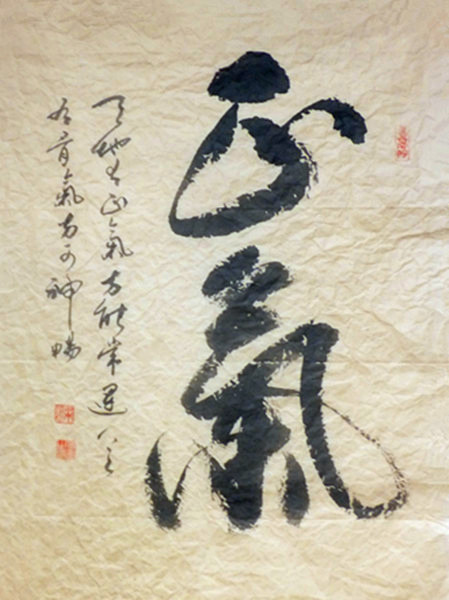 正氣
天地有正氣方能常運人
有骨氣方可神暢